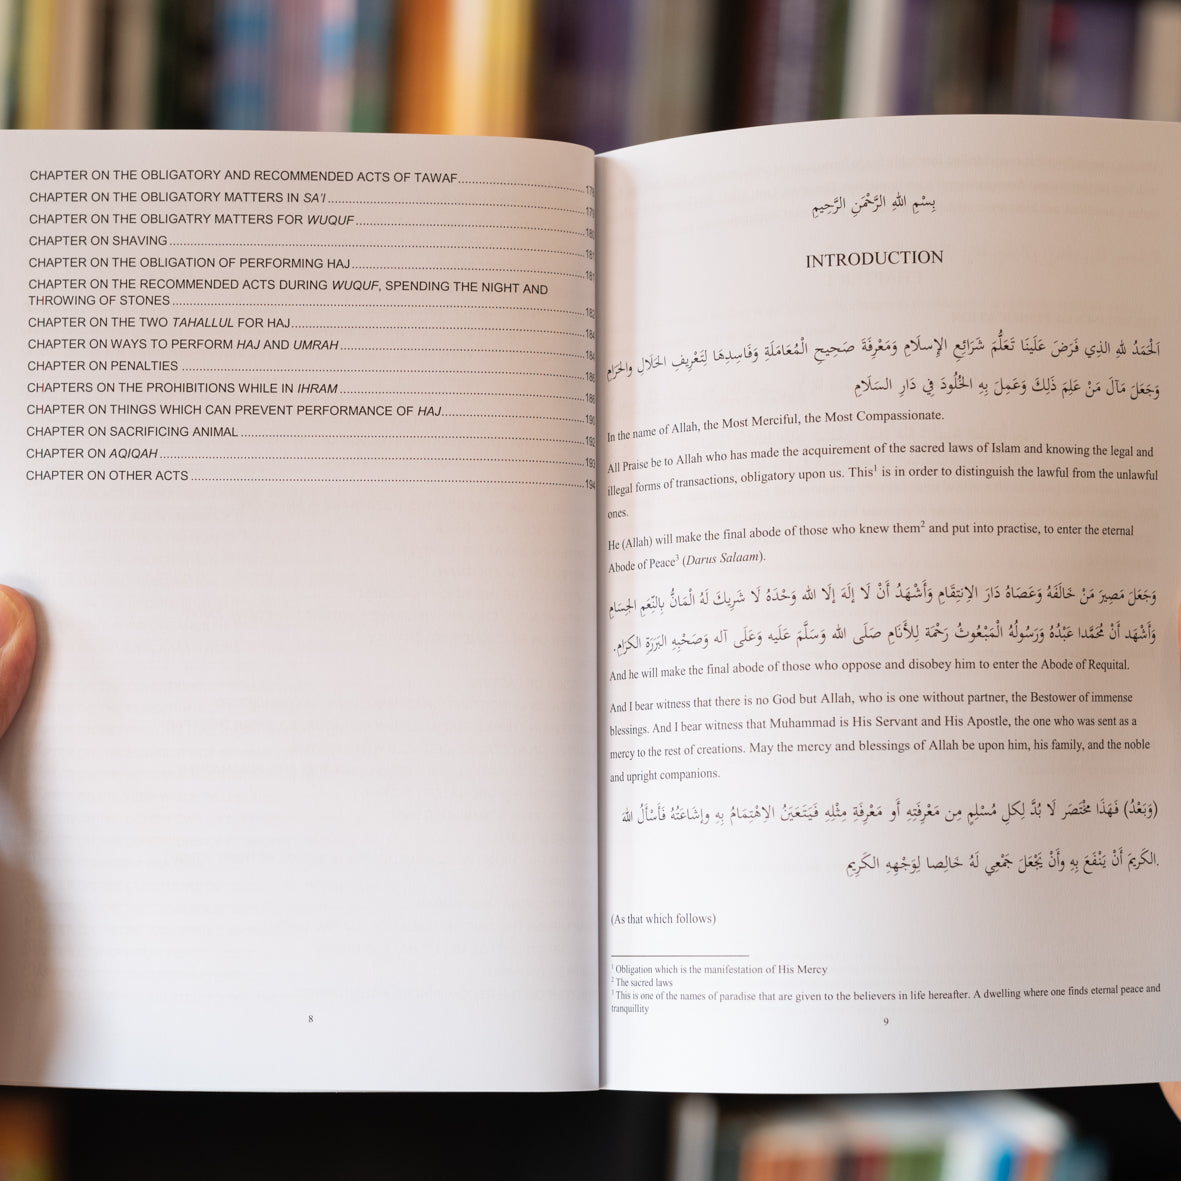 CHAPTER ON THE OBLIGATORY AND RECOMMENDED ACTS OF TAWAF
CHAPTER ON THE OBLIGATORY MATTERS IN SA'I
CHAPTER ON THE OBLIGATRY MATTERS FOR WUQUF
CHAPTER ON SHAVING
CHAPTER ON THE OBLIGATION OF PERFORMING HAJ
CHAPTER ON THE RECOMMENDED ACTS DURING WUQUF, SPENDING THE NIGHT AND
THROWING OF STONES
CHAPTER ON THE TWO TAHALLUL FOR HAJ
CHAPTER ON WAYS TO PERFORM HAJ AND UMRAH
CHAPTER ON PENALTIES
CHAPTERS ON THE PROHIBITIONS WHILE IN IHRAM
CHAPTER ON THINGS WHICH CAN PREVENT PERFORMANCE OF HAJ
CHAPTER ON SACRIFICING ANIMAL
CHAPTER ON AQIQAH
CHAPTER ON OTHER ACTS 194
8
بِسْمِ اللهِ الرَّحْمَنِ الرَّحِيمِ
INTRODUCTION
اَلْحَمْدُ للهِ الذِي فَرَضَ عَلَينَا تَعَلُّمَ شَرَائِعِ الإِسلَامِ وَمَعْرِفَةَ صَحِيحِ الْمُعَامَلَةِ وَفَاسِدِهَا لِتَعْرِيفِ الحَلَالِ والحَرَامِ
وَجَعَلَ مَآلَ مَنْ عَلِمَ ذَلِكَ وَعَمِلَ بِهِ الخُلُودَ فِي دَارِ السَلَامِ
In the name of Allah, the Most Merciful, the Most Compassionate.
All Praise be to Allah who has made the acquirement of the sacred laws of Islam and knowing the legal and
illegal forms of transactions, obligatory upon us. This1 is in order to distinguish the lawful from the unlawful
ones.
He (Allah) will make the final abode of those who knew them2 and put into practise, to enter the eternal
Abode of Peace3 (Darus Salaam).
وَجَعَلَ مَصِيرَ مَنْ خَالَفَهُ وَعَصَاهُ دَارَ الِانتِقَامِ وَأَشْهَدُ أَنْ لَا إِلَهَ إِلَّا الله وَحْدَهُ لَا شَرِيكَ لَهُ الْمَانُّ بِالنِّعَمِ الجِسَامِ
وَأَشْهَد أَنْ مُحَمَّدا عَبْدُهُ وَرَسُولُهُ الْمَبْعُوثُ رَحْمَة لِلأَنَامِ صَلَى الله وَسَلَّمَ عَلَيه وَعَلَى آله وَصَحْبِهِ البَرَرَةِ الكرَامِ.
And he will make the final abode of those who oppose and disobey him to enter the Abode of Requital.
And I bear witness that there is no God but Allah, who is one without partner, the Bestower of immense
blessings. And I bear witness that Muhammad is His Servant and His Apostle, the one who was sent as a
mercy to the rest of creations. May the mercy and blessings of Allah be upon him, his family, and the noble
and upright companions.
(وَبَعْدُ) فَهَذَا مُخْتَصَر لَا بُدَّ لِكلِ مُسْلِمٍ مِن مَعْرِفَتِهِ أَو مَعْرِفَةِ مِثْلِهِ فَيَتَعَيَنُ الِاهْتِمَامُ بِهِ وإشَاعَتُهُ فَأَسْأَلُ اللهَ
.الكَرِيمَ أَنْ يَنْفَعَ بِهِ وأَنْ يَجْعَلَ جَمْعِي لَهُ خَالِصا لِوَجْهِهِ الكَرِيم
(As that which follows)
1 Obligation which is the manifestation of His Mercy
2 The sacred laws
3 This is one of the names of paradise that are given to the believers in life hereafter. A dwelling where one finds eternal peace and
tranquillity
9